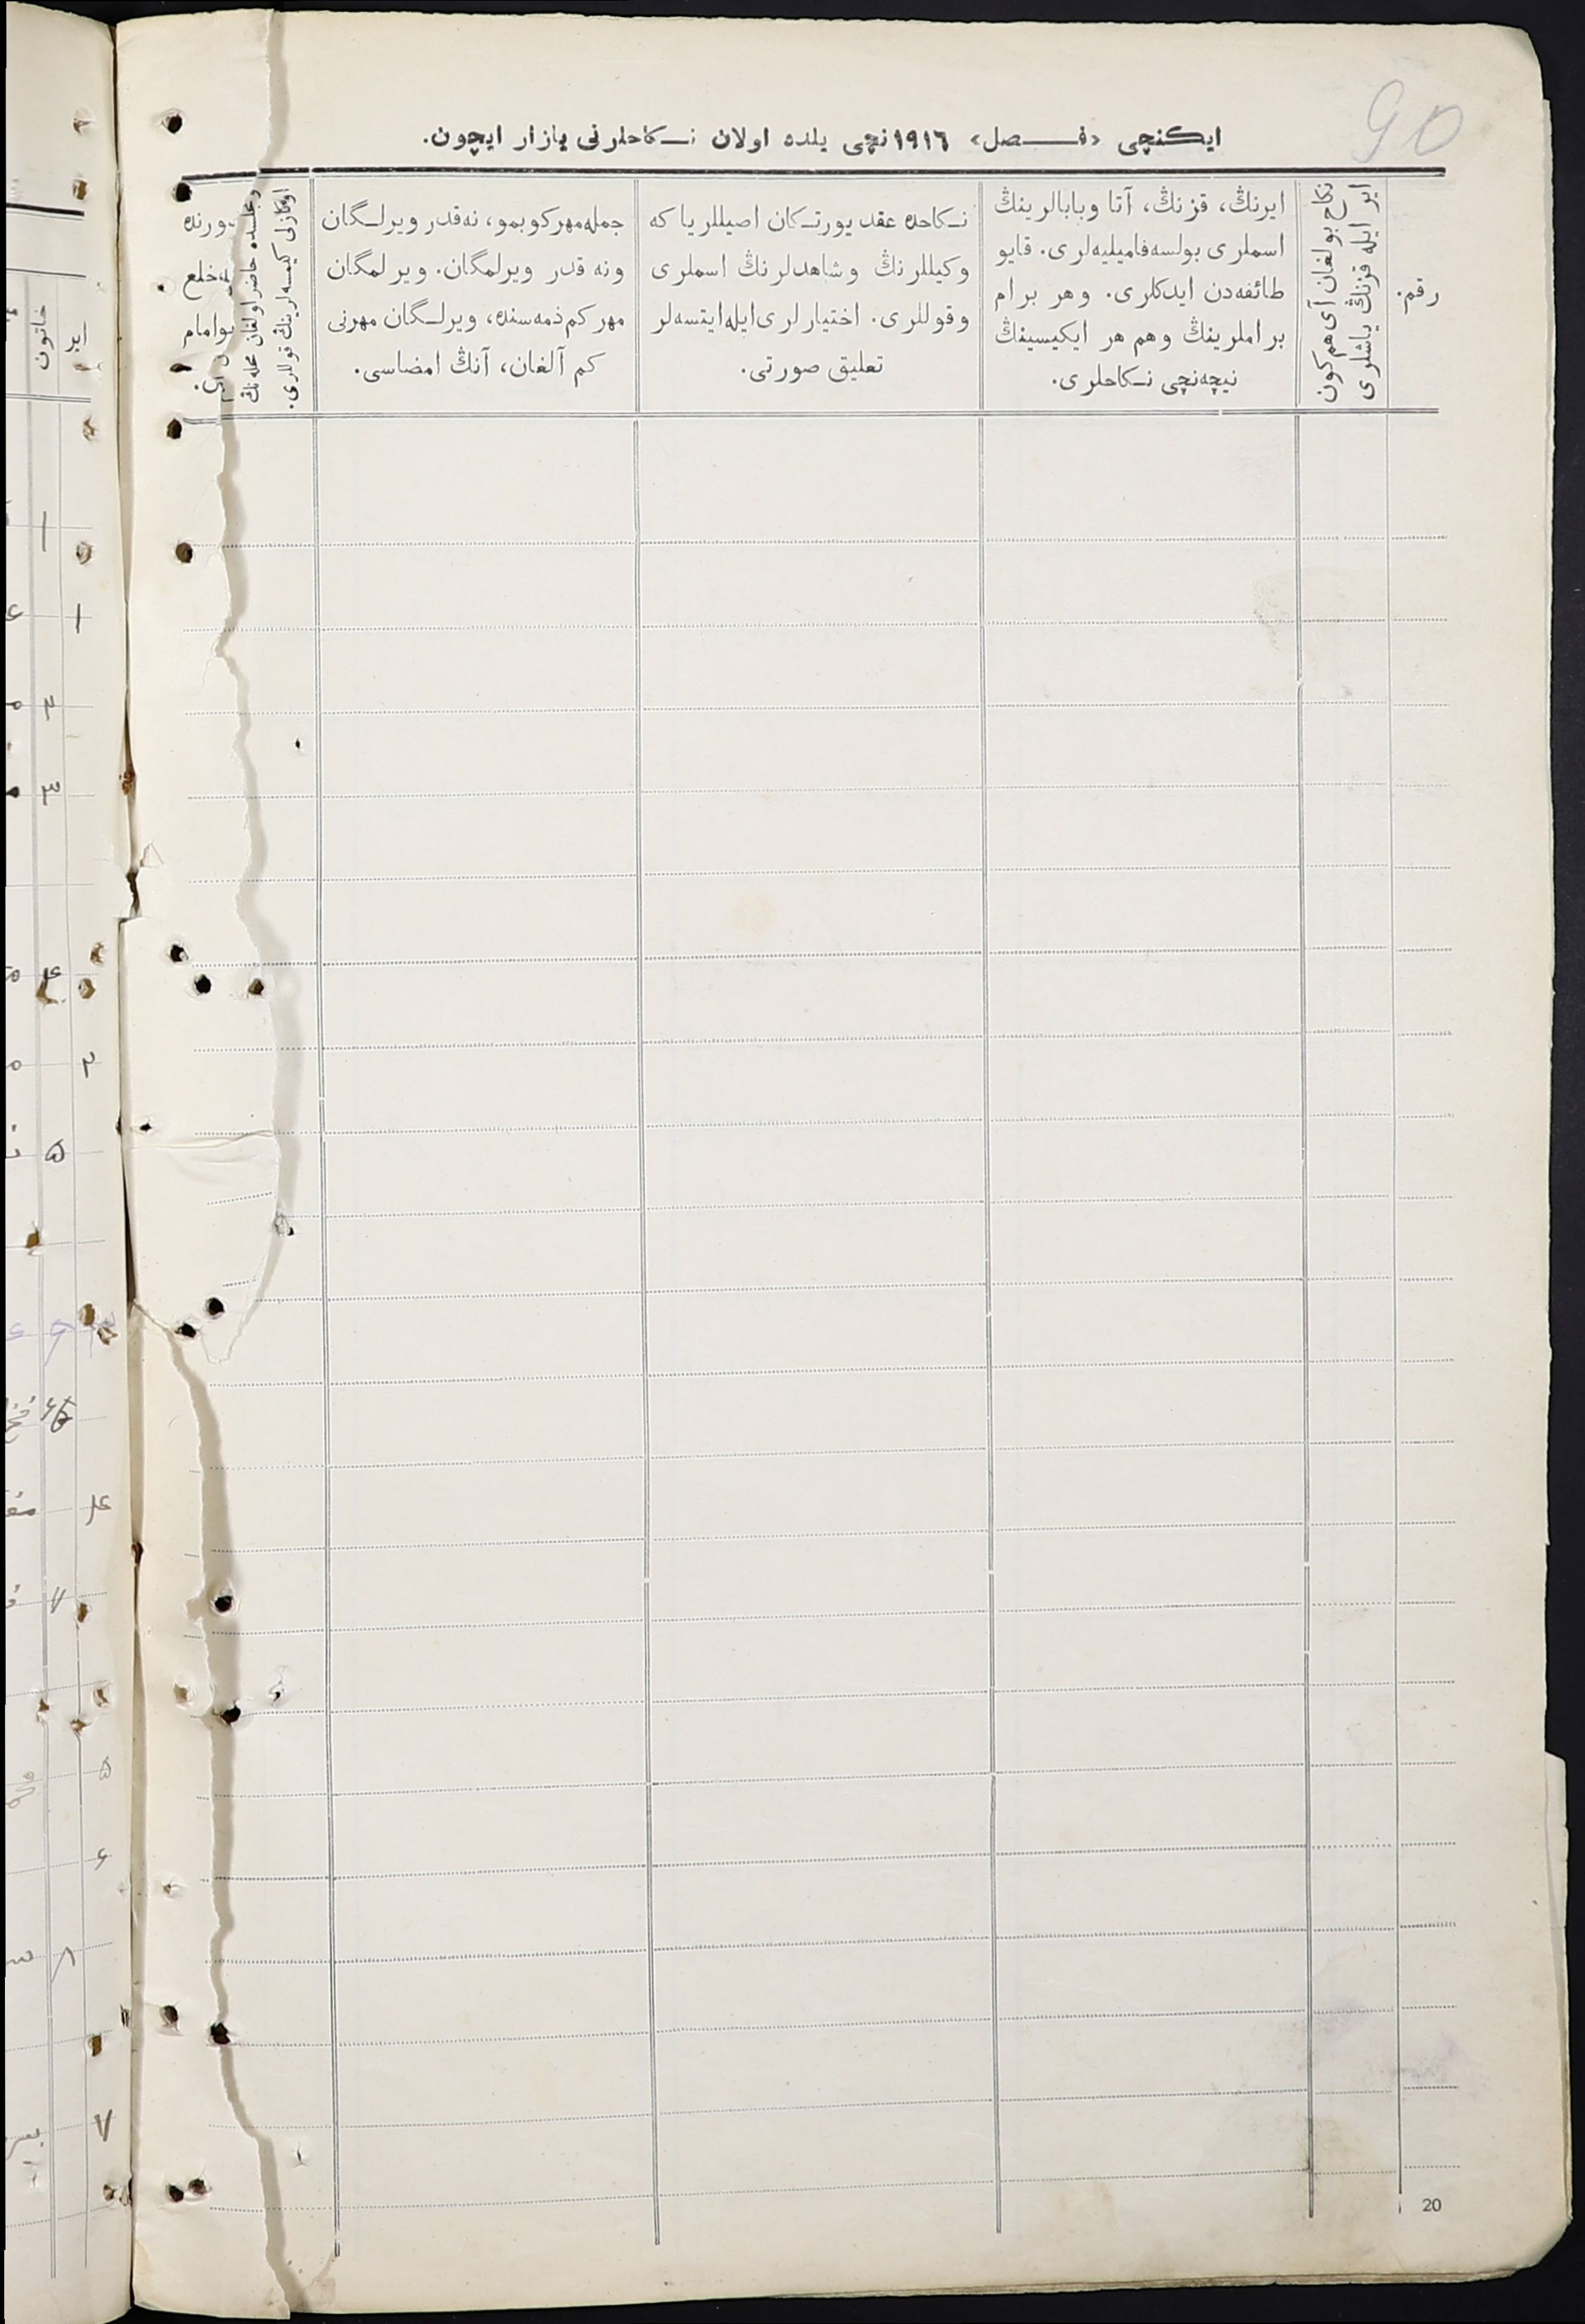 90
ایكنچی «فصل» ١٩١٦نچی یلده اولان نكاحلرنی یازار ایچون.
رقم.
نكاح بولغان آی هم كون
ایر ایله قزنڭ یاشلری
ایرنڭ، قزنڭ، آتا وبابالرینڭ
اسملری بولسه فامیلیه‌لری. قایو
طائفه‌دن ایدكلری. وهر برام
براملرینڭ وهم هر ایكیسینڭ
نیچه‌نچی نكاحلری.
نكاحده عقد یورتكان اصیللر یا كه
وكیللرنڭ وشاهدلرنڭ اسملری
وقوللری. اختیارلری‌ایله‌ایتسه‌لر
تعلیق صورتی.
جمله‌مهر كوبمو، نه‌قدر ویرلگان
ونه قدر ویرلمگان. ویرلمگان
مهر كم ذمه‌سنده، ویرلگان مهرنی
كم آلغان، آنڭ امضاسی.
اوكازلی كیمسه‌لرینڭ قوللری.
مجلسده حاضر اولغان محله‌نڭ
خلع
امام
خاتون
ایر
١
١
٢
٣
۴
٢
۵
۴
٧
۵
۶
٨
٧
20